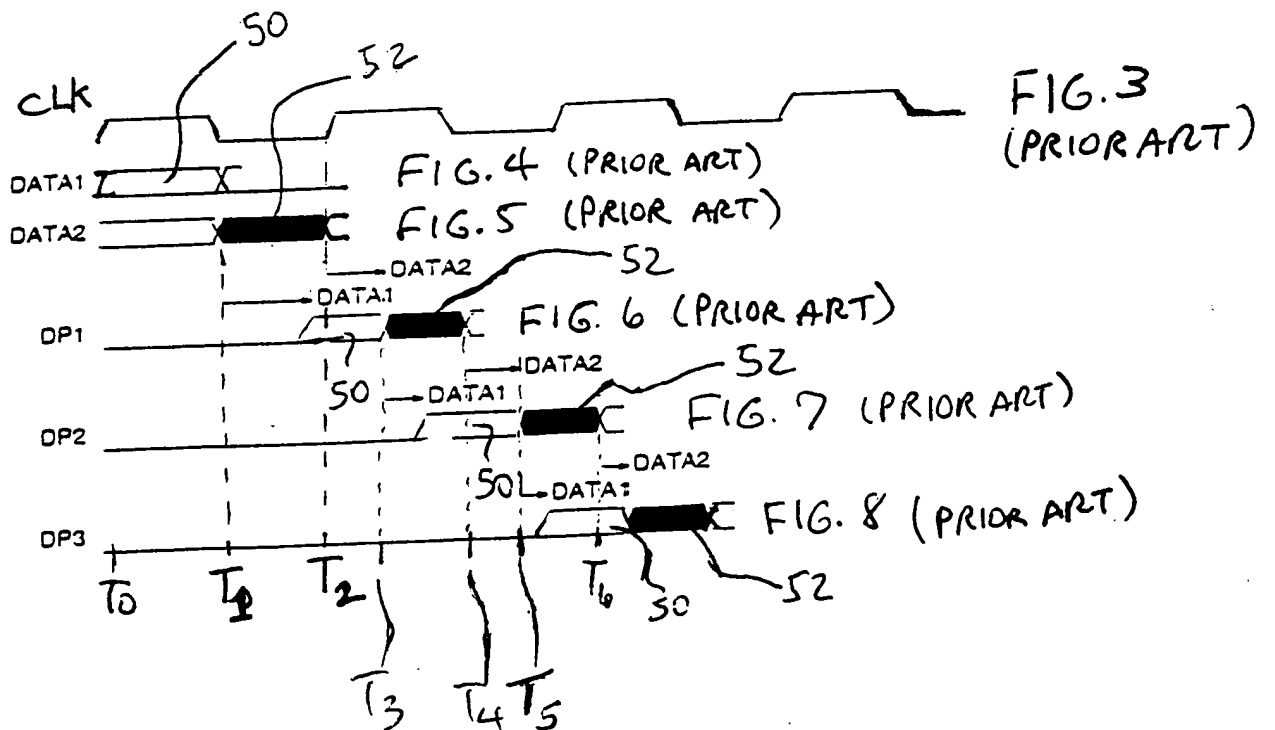 50
52
CLK
FIG. 3
(PRIOR ART)
DATA1
FIG. 4 (PRIOR ART)
DATA2
FIG. 5 (PRIOR ART)
DATA2
52
DATA1
DP1
FIG. 6 (PRIOR ART)
50
DATA2
52
DATA1
DP2
FIG. 7 (PRIOR ART)
50
DATA2
DATA1
DP3
FIG. 8 (PRIOR ART)
T0 T1 T2 T6 50 52
T3 T4 T5